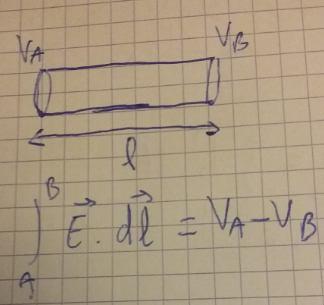 V_A V_B
l
∫_A^B E⃗ . dl⃗ = V_A − V_B